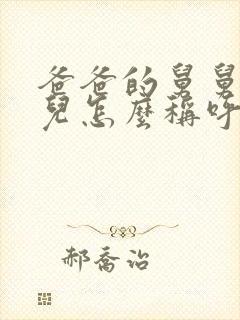 爸爸的舅舅
兒怎麼稱呼
郝喬治